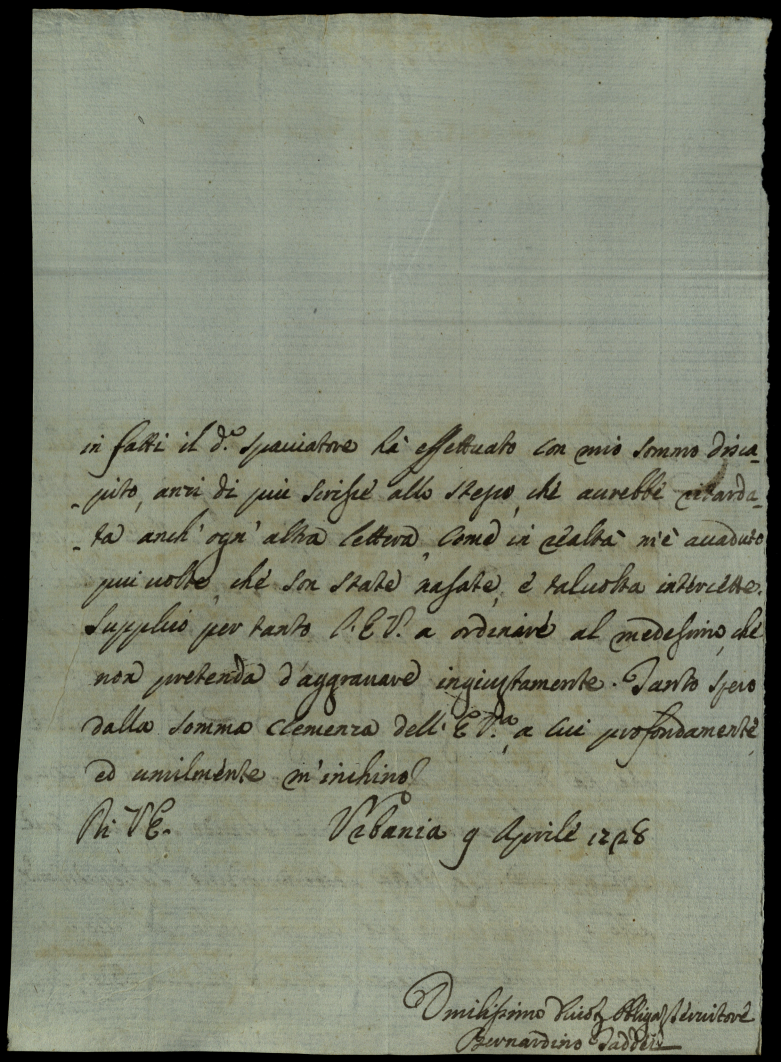 in fatti il d.º spacciatore hà effettuato con mio sommo disca-
-pito, anzi di più scrisse allo stesso, che aurebbe ritarda-
-ta anch' ogn' altra lettera, come in realtà m'è accaduto
più uolte, che son state nasate, e taluolta intercette.
Supplico per tanto l'E.V. a ordinare al medesimo, che
non pretenda d'aggrauare ingiustamente. Tanto spero
dalla somma clemenza dell' E.V.ª, a cui profondamente,
ed umilmente m'inchino
Di V.E. Vrbania 9 Aprile 1728
Vmilissimo Diuot. Obligat. Seruitore
Bernardino Taddei